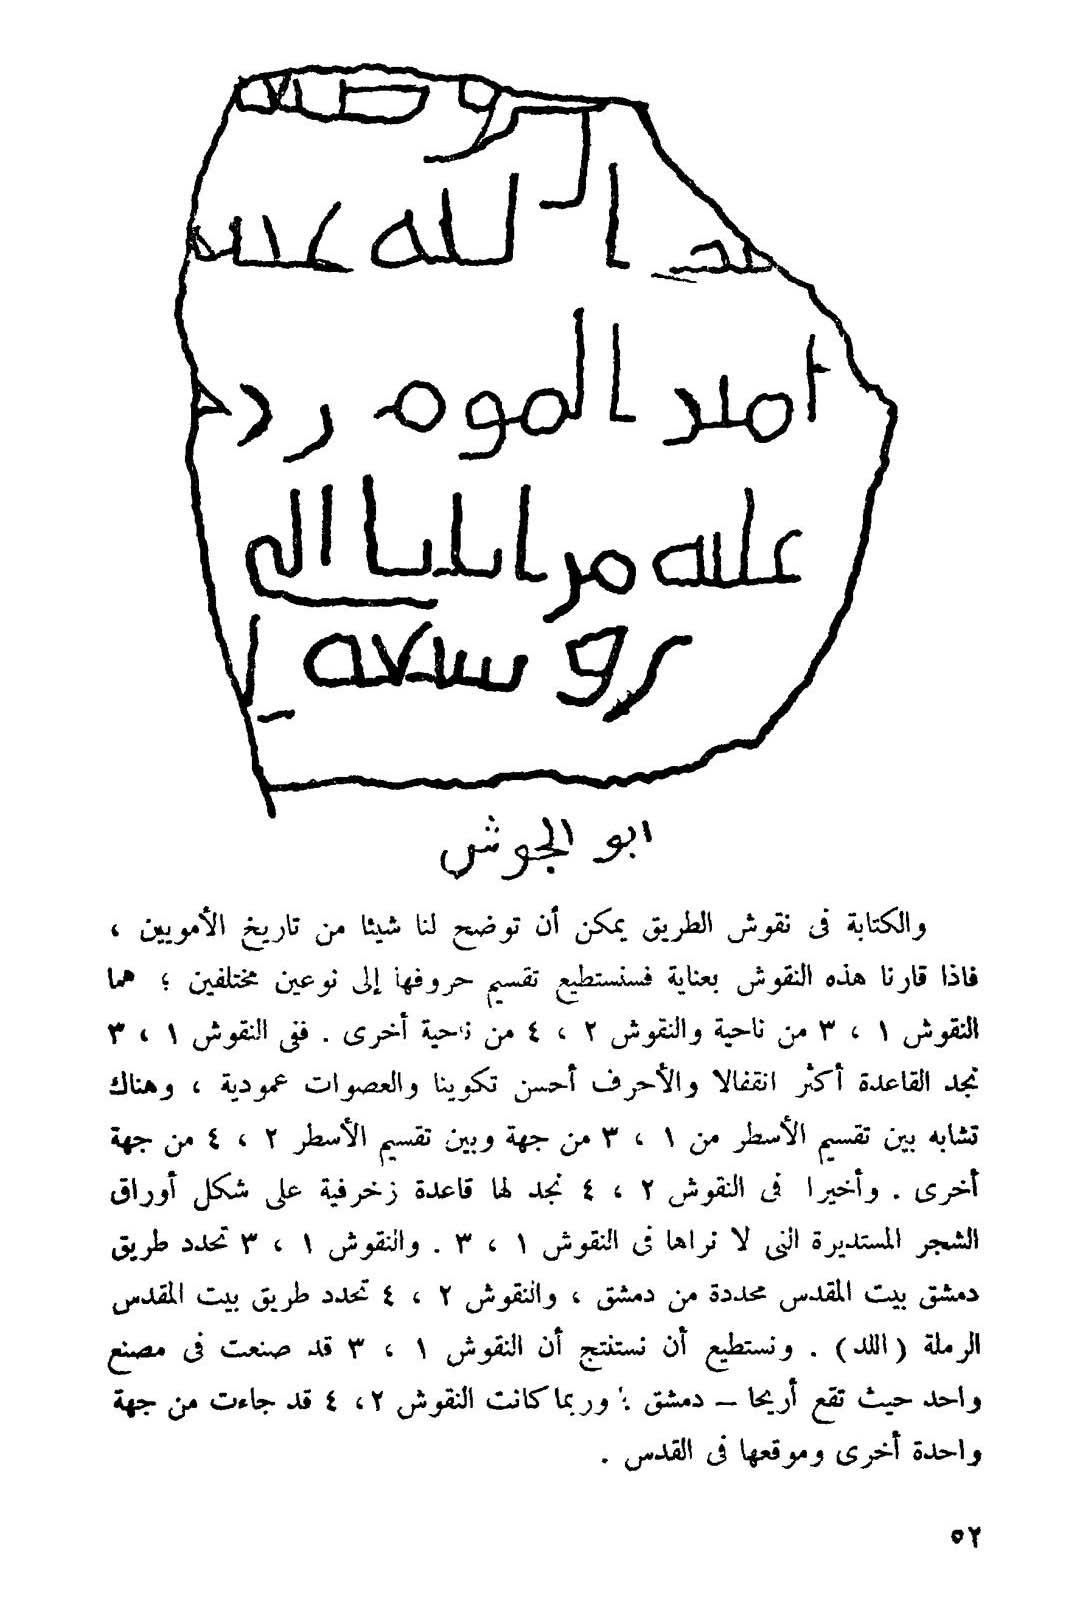 عبد الله عبد
امير المومنين رحمة
عليه من ايليا الى
ابو الجوش
والكتابة فى نقوش الطريق يمكن أن توضح لنا شيئا من تاريخ الأمويين ،
فاذا قارنا هذه النقوش بعناية فسنستطيع تقسيم حروفها إلى نوعين مختلفين ؛ هما
النقوش ١ ، ٣ من ناحية والنقوش ٢ ، ٤ من ناحية أخرى . ففى النقوش ١ ، ٣
نجد القاعدة أكثر انقفالا والأحرف أحسن تكوينا والعصوات عمودية ، وهناك
تشابه بين تقسيم الأسطر من ١ ، ٣ من جهة وبين تقسيم الأسطر ٢ ، ٤ من جهة
أخرى . وأخيرا فى النقوش ٢ ، ٤ نجد لها قاعدة زخرفية على شكل أوراق
الشجر المستديرة التى لا نراها فى النقوش ١ ، ٣ . والنقوش ١ ، ٣ تحدد طريق
دمشق بيت المقدس محددة من دمشق ، والنقوش ٢ ، ٤ تحدد طريق بيت المقدس
الرملة ( اللد ) . ونستطيع أن نستنتج أن النقوش ١ ، ٣ قد صنعت فى مصنع
واحد حيث تقع أريحا – دمشق ؛ وربما كانت النقوش ٢ ، ٤ قد جاءت من جهة
واحدة أخرى وموقعها فى القدس .
٥٢